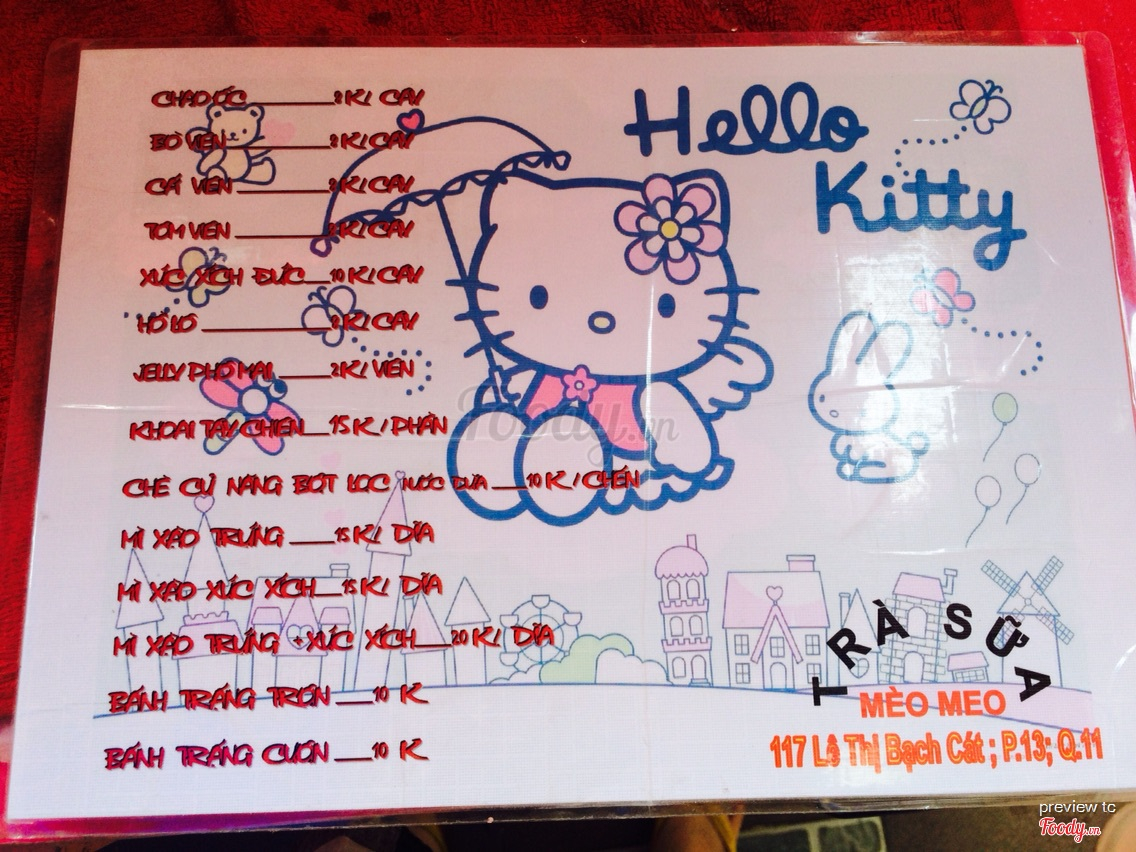 CHẠO ỐC 8 K/ CÂY
BÒ VIÊN 8 K/ CÂY
CÁ VIÊN 8 K/ CÂY
TÔM VIÊN K/ CÂY
XÚC XÍCH ĐỨC 10 K/ CÂY
HỒ LÔ K/ CÂY
JELLY PHÔ MAI 2K/ VIÊN
KHOAI TÂY CHIÊN 15 K/ PHẦN
CHÈ CỦ NĂNG BỘT LỌC NƯỚC DỪA 10 K/ CHÉN
MÌ XÀO TRỨNG 15 K/ DĨA
MÌ XÀO XÚC XÍCH 15 K/ DĨA
MÌ XÀO TRỨNG + XÚC XÍCH 20 K/ DĨA
BÁNH TRÁNG TRỘN 10 K
BÁNH TRÁNG CUỐN 10 K
Hello
Kitty
Foody.vn
TRÀ SỮA
MÈO MEO
117 Lê Thị Bạch Cát ; P.13; Q.11
preview tc
Foody.vn